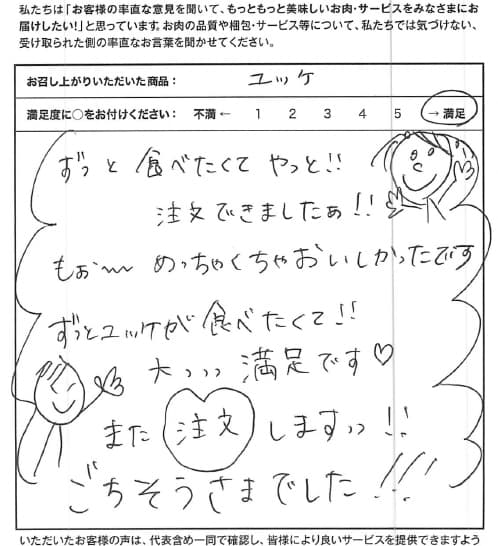 私たちは「お客様の率直な意見を聞いて、もっともっと美味しいお肉・サービスをみなさまにお
届けしたい!」と思っています。お肉の品質や梱包・サービス等について、私たちでは気づけない、
受け取られた側の率直なお言葉を聞かせてください。
お召し上がりいただいた商品： ユッケ
満足度に○をお付けください： 不満 ← 1 2 3 4 5 → 満足
ずっと 食べたくて やっと!!
注文できましたぁ!!
もぉ〜 めっちゃくちゃおいしかったです
ずっとユッケが食べたくて!!
大っっっ 満足です♡
また 注文 しますッッ!!
ごちそうさまでした!!!
いただいたお客様の声は、代表含め一同で確認し、皆様により良いサービスを提供できますよう